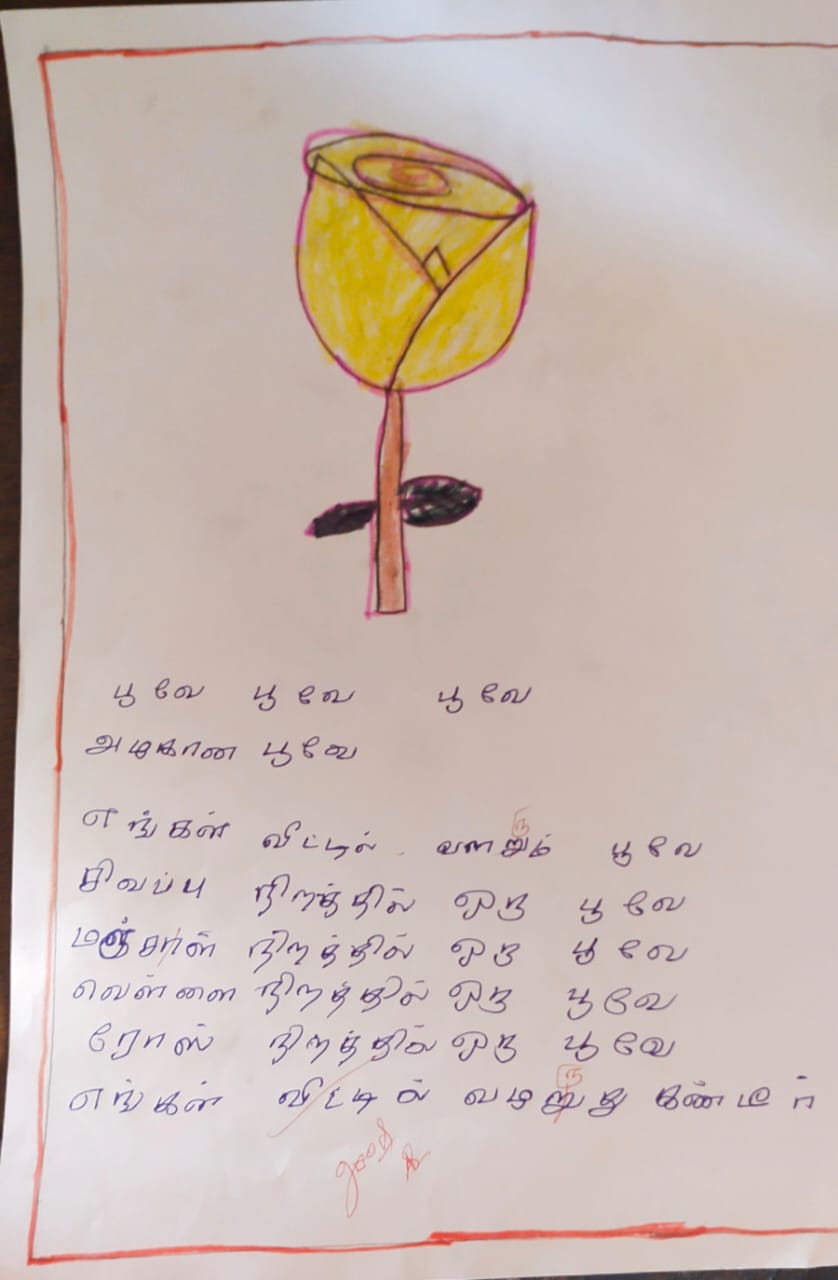 பூவே பூவே பூவே
அழகான பூவே
எங்கள் வீட்டில் வளறும் பூவே
சிவப்பு நிறத்தில் ஒரு பூவே
மஞ்சாள் நிறத்தில் ஒரு பூவே
வெள்ளை நிறத்தில் ஒரு பூவே
ரோஸ் நிறத்தில் ஒரு பூவே
எங்கள் வீட்டில் வழறுது கண்டீர்
good